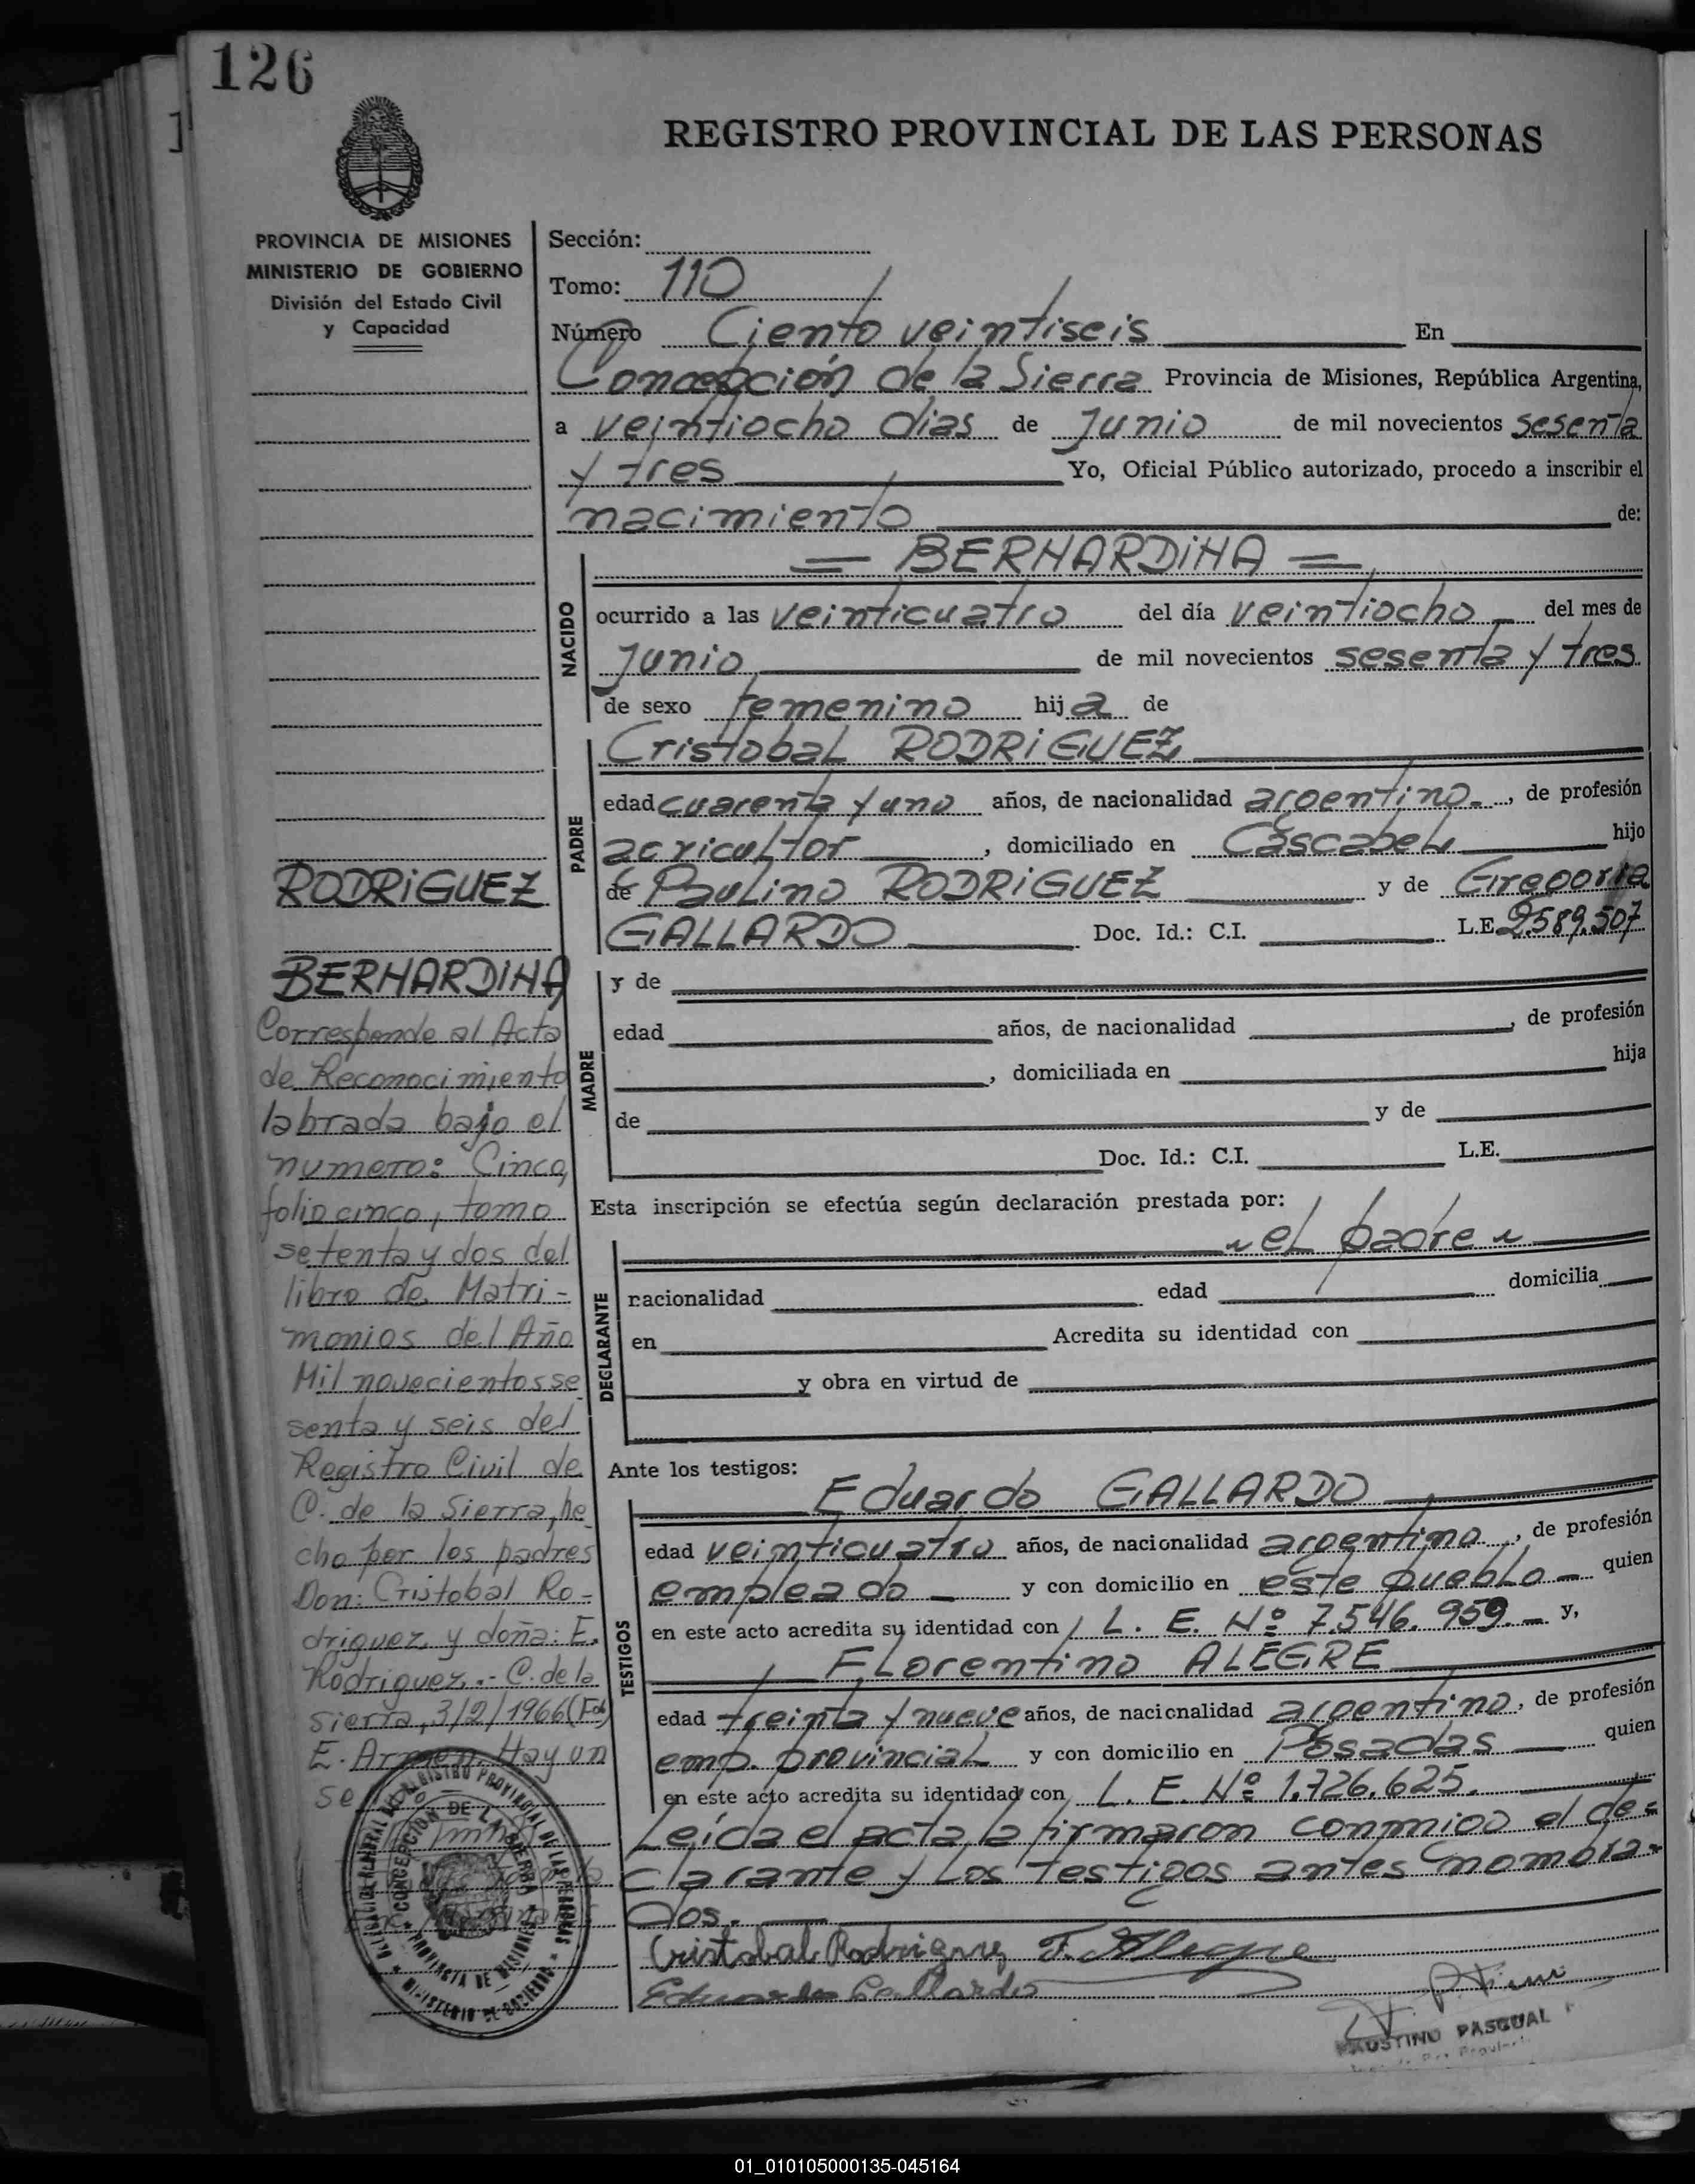 126
REGISTRO PROVINCIAL DE LAS PERSONAS
PROVINCIA DE MISIONES
MINISTERIO DE GOBIERNO
División del Estado Civil
y Capacidad
Sección:
Tomo: 110
Número Ciento veintiseis En
Concepción de la Sierra Provincia de Misiones, República Argentina,
a veintiocho dias de Junio de mil novecientos sesenta
y tres Yo, Oficial Público autorizado, procedo a inscribir el
nacimiento de:
NACIDO
= BERNARDINA =
ocurrido a las veinticuatro del día veintiocho del mes de
Junio de mil novecientos sesenta y tres
de sexo femenino hija de
PADRE
Cristobal RODRIGUEZ
edad cuarenta y uno años, de nacionalidad argentino, de profesión
agricultor, domiciliado en Cascabel hijo
de Paulino RODRIGUEZ y de Gregoria
GALLARDO Doc. Id.: C.I. L.E. 2.589.507
MADRE
y de
edad años, de nacionalidad , de profesión
, domiciliada en hija
de y de
Doc. Id.: C.I. L.E.
Esta inscripción se efectúa según declaración prestada por:
DECLARANTE
el padre
nacionalidad edad domicilia
en Acredita su identidad con
y obra en virtud de
Ante los testigos:
TESTIGOS
Eduardo GALLARDO
edad veinticuatro años, de nacionalidad argentino, de profesión
empleado y con domicilio en este pueblo quien
en este acto acredita su identidad con L. E. Nº 7.546.959.- y,
Florentino ALEGRE
edad treinta y nueve años, de nacionalidad argentino, de profesión
emp. provincial y con domicilio en Posadas quien
en este acto acredita su identidad con L. E. Nº 1.726.625.
Leída el acta la firmaron conmigo el de-
clarante y los testigos antes nombra-
dos.
Cristobal Rodriguez F. Alegre
Eduardo Gallardo
FAUSTINO PASCUAL
RODRIGUEZ
BERNARDINA
Corresponde al Acta
de Reconocimiento
labrada bajo el
numero: Cinco,
folio cinco, tomo
setenta y dos del
libro de Matri-
monios del Año
Mil novecientos se
senta y seis del
Registro Civil de
C. de la Sierra, he
cho por los padres
Don: Cristobal Ro-
driguez y doña: E.
Rodriguez.- C. de la
Sierra, 3/2/1966
E. Hay un
se
REGISTRO PROVINCIAL DE LAS PERSONAS
CONCEPCION DE LA SIERRA
PROVINCIA DE MISIONES
MINISTERIO DE GOBIERNO
01_010105000135-045164